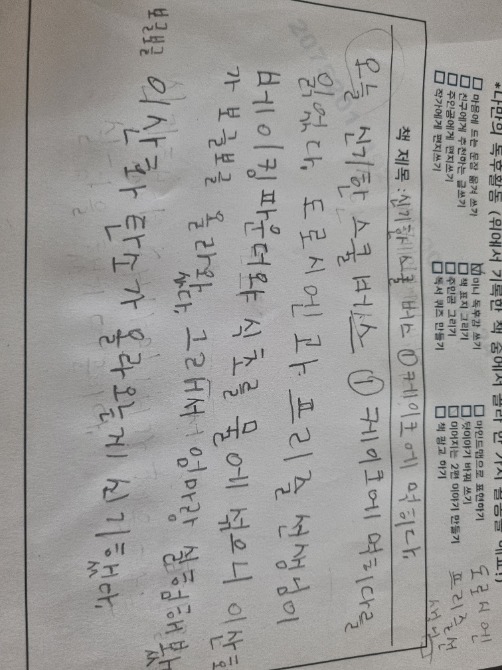 *나만의 독후활동 위에서 기록한 책 중에서 골라 한 가지 활동을 해요!)
□ 마음에 드는 문장 옮겨 쓰기 ☑ 미니 독후감 쓰기 □ 마인드맵으로 표현하기
□ 친구에게 추천하는 글쓰기 □ 책 표지 그리기 □ 뒷이야기 바꿔 쓰기
□ 주인공에게 편지쓰기 □ 주인공 그리기 □ 이어지는 2편 이야기 만들기
□ 작가에게 편지쓰기 □ 독서 퀴즈 만들기 □ 책 광고 하기
도로시엔
프리즐선
생님
책 제목 : 신기한 스쿨 버스 ① 케이크에 먹히다
오늘 신기한 스쿨 버스 ① 케이크에 먹히다를
읽었다. 도로시엔과 프리즐 선생님이
베이킹파우더와 식초를 물에 섞으니 이산화
가 보글보글 올라왔다. 그래서 엄마랑 실험해봤
보글보글 이산화 탄소가 올라왔는게 신기했다.